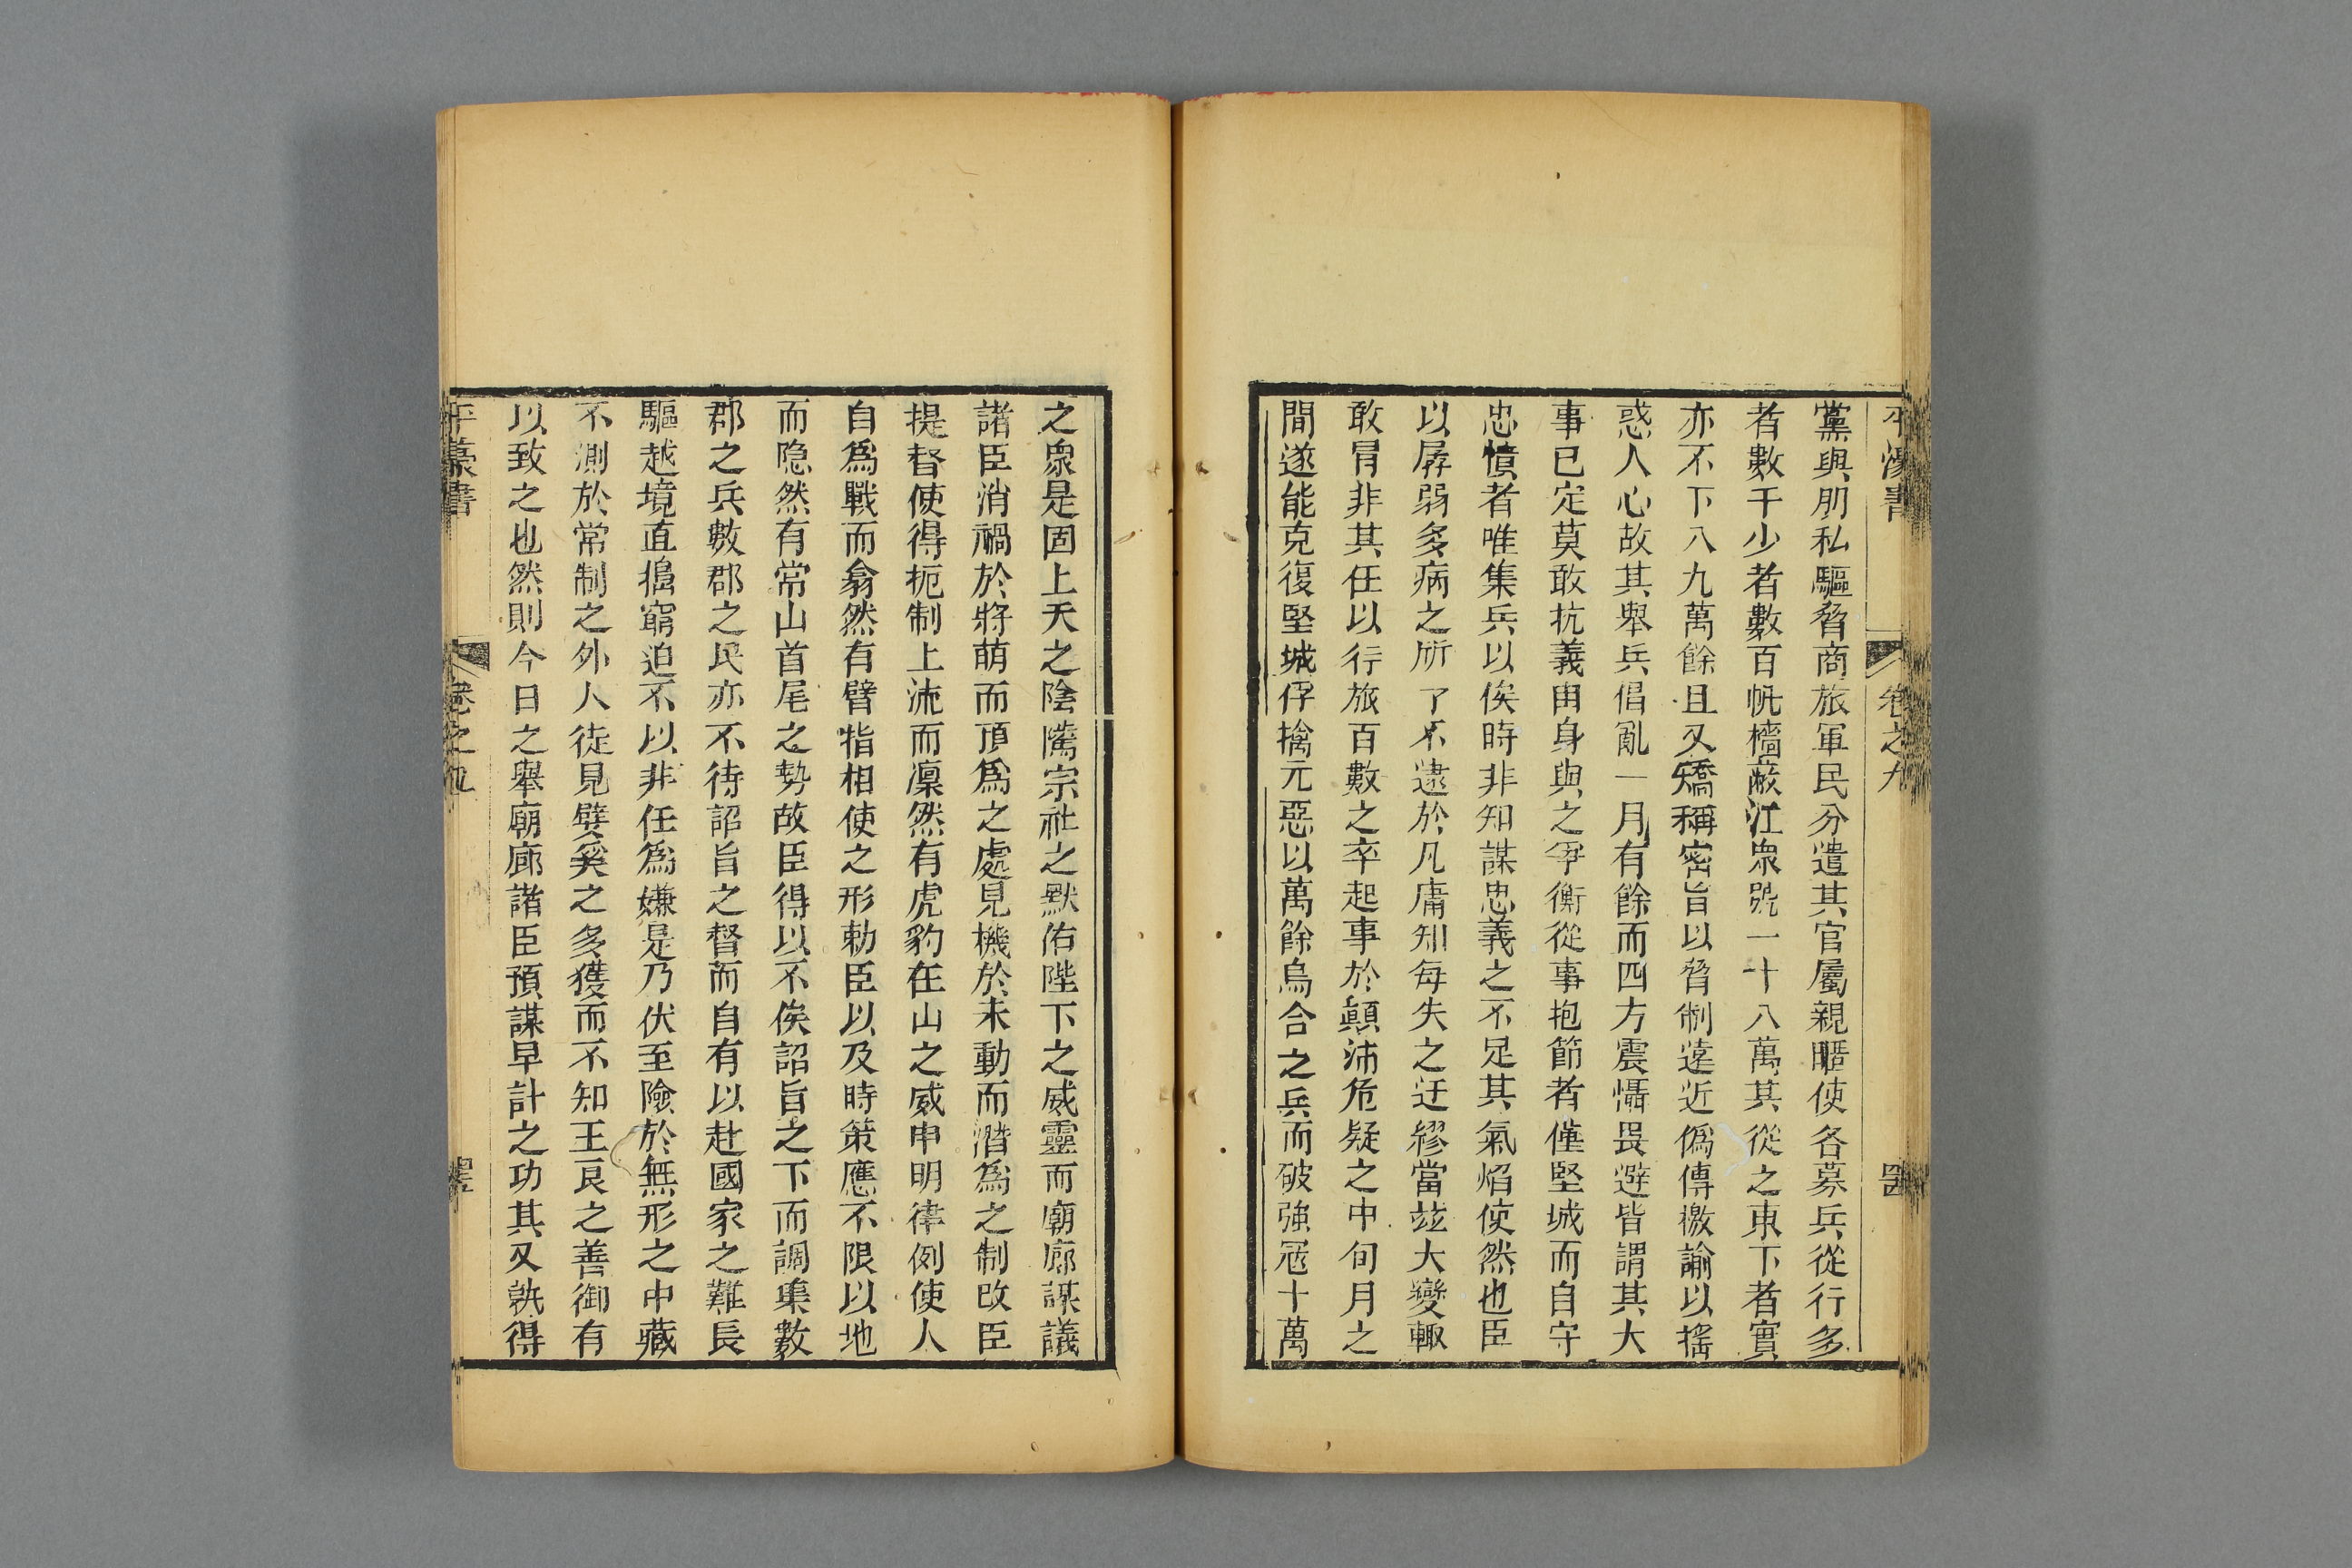 平濠書 卷之九
黨與朋私驅脅商旅軍民分遣其官屬親暱使各募兵從行多
者數千少者數百帆檣蔽江衆號一十八萬其從之東下者實
亦不下八九萬餘且又矯稱密旨以脅制遠近僞傳檄諭以搖
惑人心故其舉兵倡亂一月有餘而四方震懾畏避皆謂其大
事已定莫敢抗義出身與之爭衡從事抱節者僅堅城而自守
忠憤者唯集兵以俟時非知謀忠義之不足其氣焰使然也臣
以孱弱多病之所了不逮於凡庸知每失之迂繆當玆大變輒
敢冒非其任以行旅百數之卒起事於顚沛危疑之中旬月之
間遂能克復堅城俘擒元惡以萬餘烏合之兵而破強寇十萬
之衆是固上天之陰隲宗社之默佑陛下之威靈而廟廊謀議
諸臣消禍於將萌而預爲之處見機於未動而潛爲之制改臣
提督使得扼制上流而凜然有虎豹在山之威申明律例使人
自爲戰而翕然有臂指相使之形勅臣以及時策應不限以地
而隐然有常山首尾之勢故臣得以不俟詔旨之下而調集數
郡之兵數郡之民亦不待詔旨之督而自有以赴國家之難長
驅越境直搗窮迫不以非任爲嫌是乃伏至險於無形之中藏
不測於常制之外人徒見嬖奚之多獲而不知王良之善御有
以致之也然則今日之舉廟廊諸臣預謀早計之功其又孰得
平濠書 卷之九